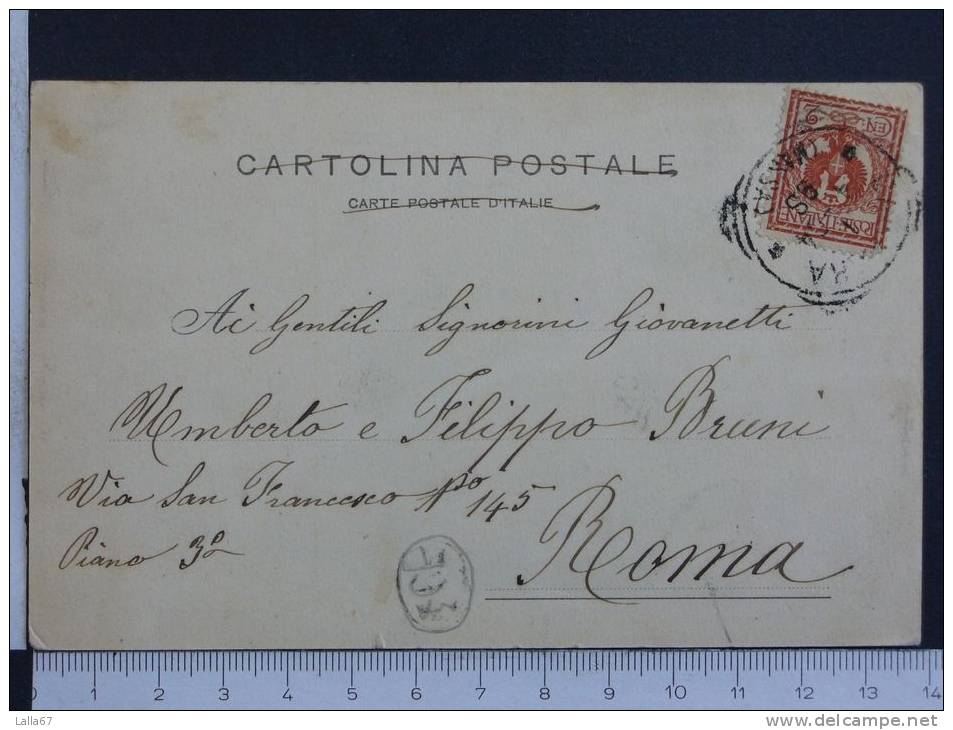 CARTOLINA POSTALE
CARTE POSTALE D'ITALIE
Ai Gentili Signorini Giovanetti
Umberto e Filippo Bruni
Via San Francesco No 145
Piano 3o
Roma
POSTE ITALIANE
(MASSA)
0 1 2 3 4 5 6 7 8 9 10 11 12 13 14
Lalla67
www.delcampe.net